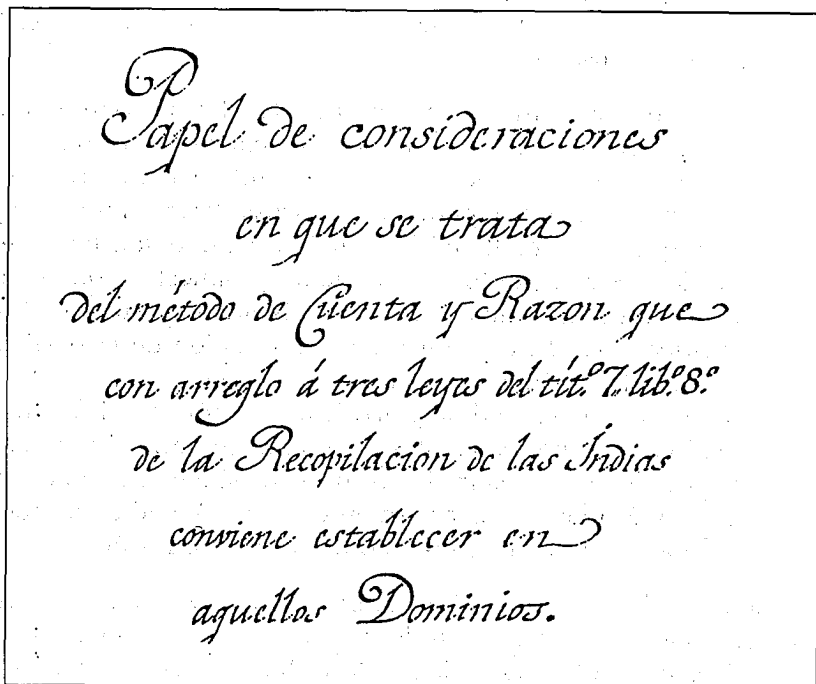 Papel de consideraciones
en que se trata
del método de Cuenta y Razon que
con arreglo á tres leyes del tít.º 7. lib.º 8.º
de la Recopilacion de las Índias
conviene establecer en
aquellos Dominios.